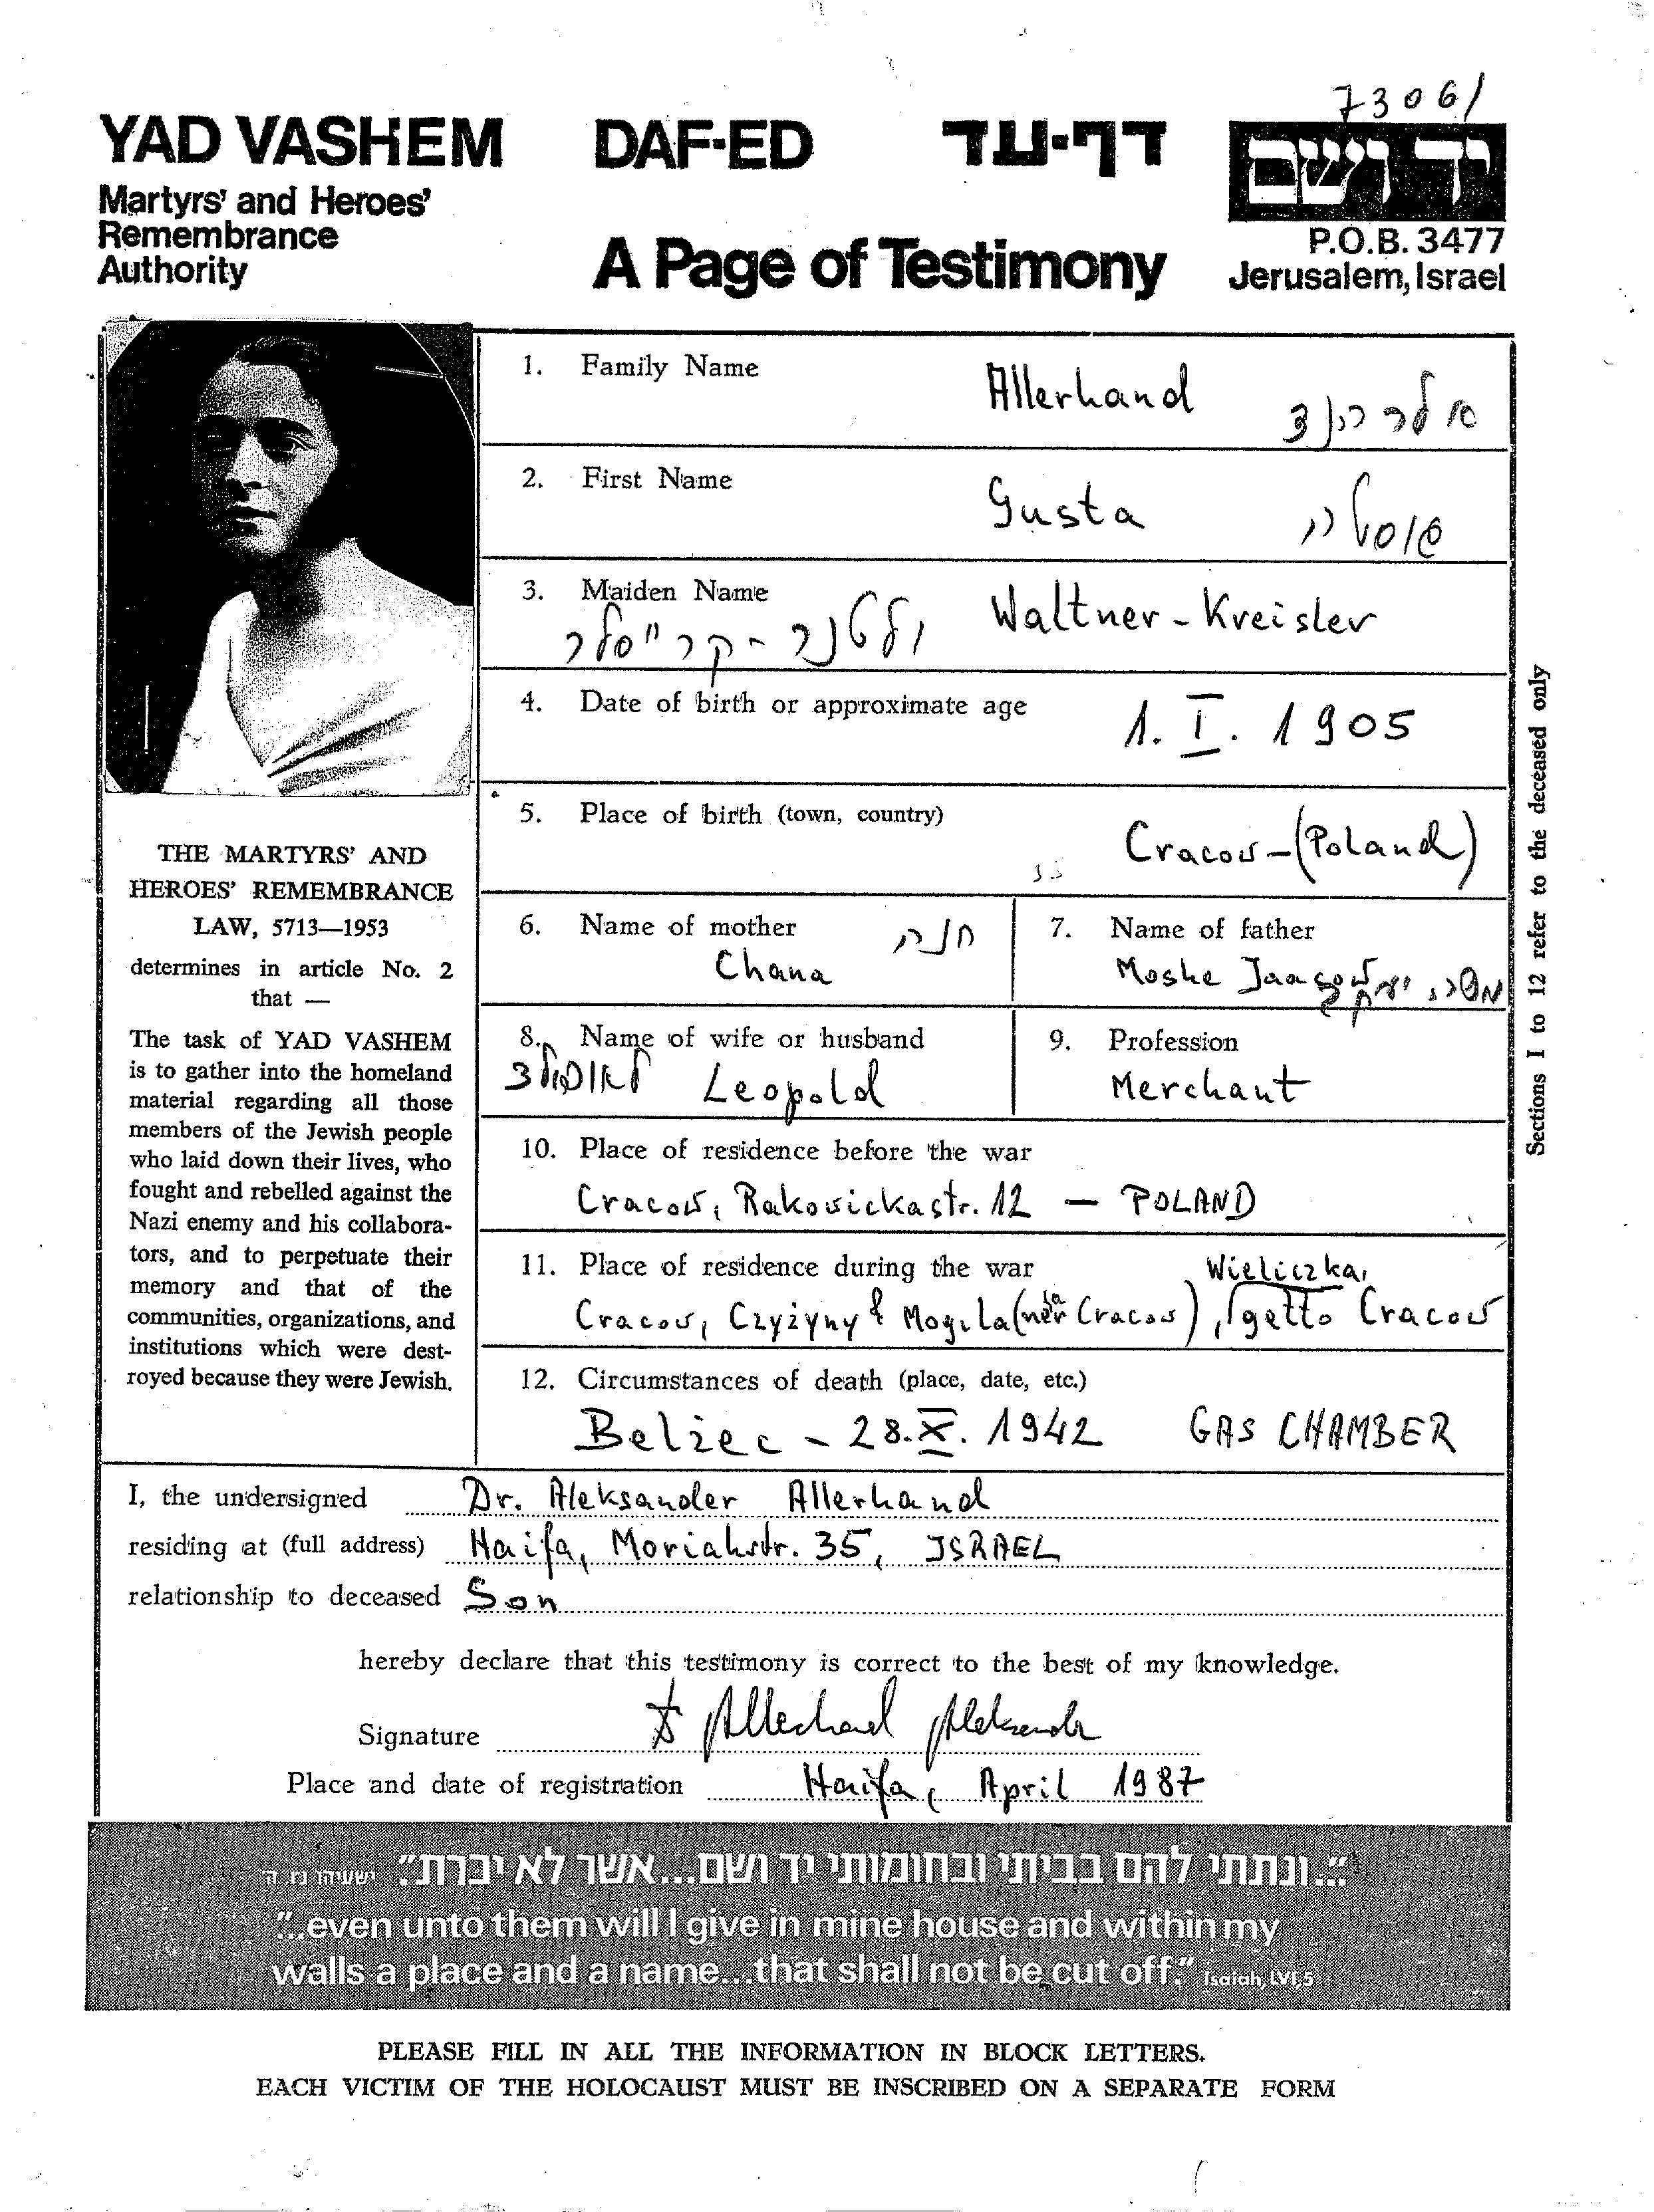 73061
YAD VASHEM DAF-ED דף-עד יד ושם
Martyrs' and Heroes'
Remembrance
Authority
A Page of Testimony
P.O.B. 3477
Jerusalem, Israel
1. Family Name Allerhand אלרהנד
2. First Name Gusta גוסטה
3. Maiden Name Waltner - Kreisler
ולטנר - קרייסלר
4. Date of birth or approximate age 1. I. 1905
5. Place of birth (town, country) Cracow - (Poland)
6. Name of mother חנה
Chana
7. Name of father
Moshe משה יעקב
8. Name of wife or husband
Leopold לאופולד
9. Profession
Merchant
10. Place of residence before the war
Cracow, Rakowickastr. 12 — POLAND
11. Place of residence during the war Wieliczka,
Cracow, Czyżyny & Mogila (near Cracow), getto Cracow
12. Circumstances of death (place, date, etc.)
Belżec - 28. X. 1942 GAS CHAMBER
Sections 1 to 12 refer to the deceased only
THE MARTYRS' AND
HEROES' REMEMBRANCE
LAW, 5713—1953
determines in article No. 2
that —
The task of YAD VASHEM
is to gather into the homeland
material regarding all those
members of the Jewish people
who laid down their lives, who
fought and rebelled against the
Nazi enemy and his collabora-
tors, and to perpetuate their
memory and that of the
communities, organizations, and
institutions which were dest-
royed because they were Jewish.
I, the undersigned Dr. Aleksander Allerhand
residing at (full address) Haifa, Moriahstr. 35, ISRAEL
relationship to deceased Son
hereby declare that this testimony is correct to the best of my knowledge.
Signature Allerhand Aleksander
Place and date of registration Haifa, April 1987
"...ונתתי להם בביתי ובחומותי יד ושם...אשר לא יכרת." ישעיהו נו, ה
"...even unto them will I give in mine house and within my
walls a place and a name...that shall not be cut off." Isaiah, LVI,5
PLEASE FILL IN ALL THE INFORMATION IN BLOCK LETTERS.
EACH VICTIM OF THE HOLOCAUST MUST BE INSCRIBED ON A SEPARATE FORM